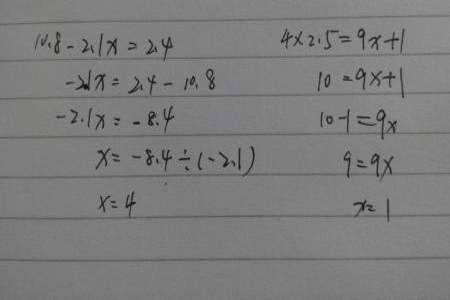 10.8-2.1x=2.4
-2.1x=2.4-10.8
-2.1x=-8.4
x=-8.4÷(-2.1)
x=4
4×2.5=9x+1
10=9x+1
10-1=9x
9=9x
x=1